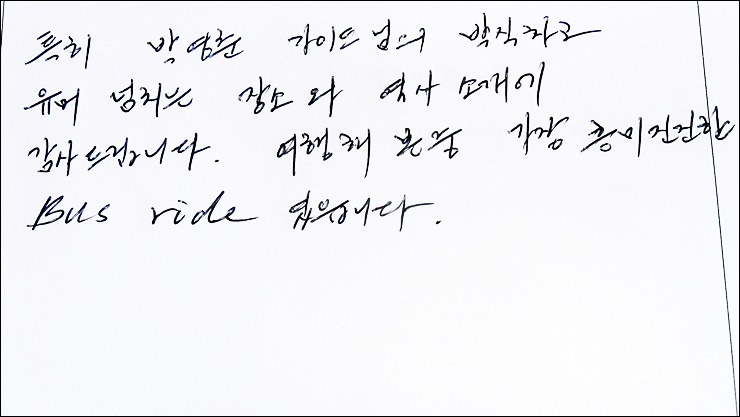 특히 박영준 가이드님의 박식하고
유머 넘치는 장소와 역사 소개에
감사드립니다. 여행해 본 중 가장 흥미진진한
Bus ride 였습니다.